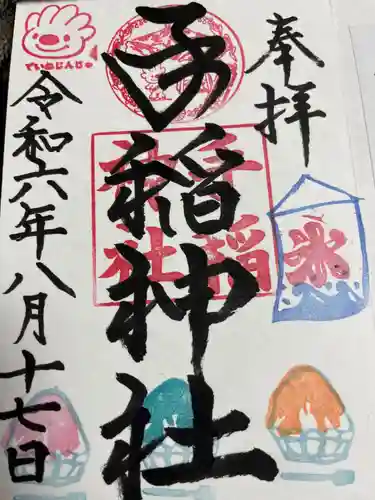 奉拝
手稲神社
手稲
神社
氷
令和六年八月十七日
ていねじんじゃ